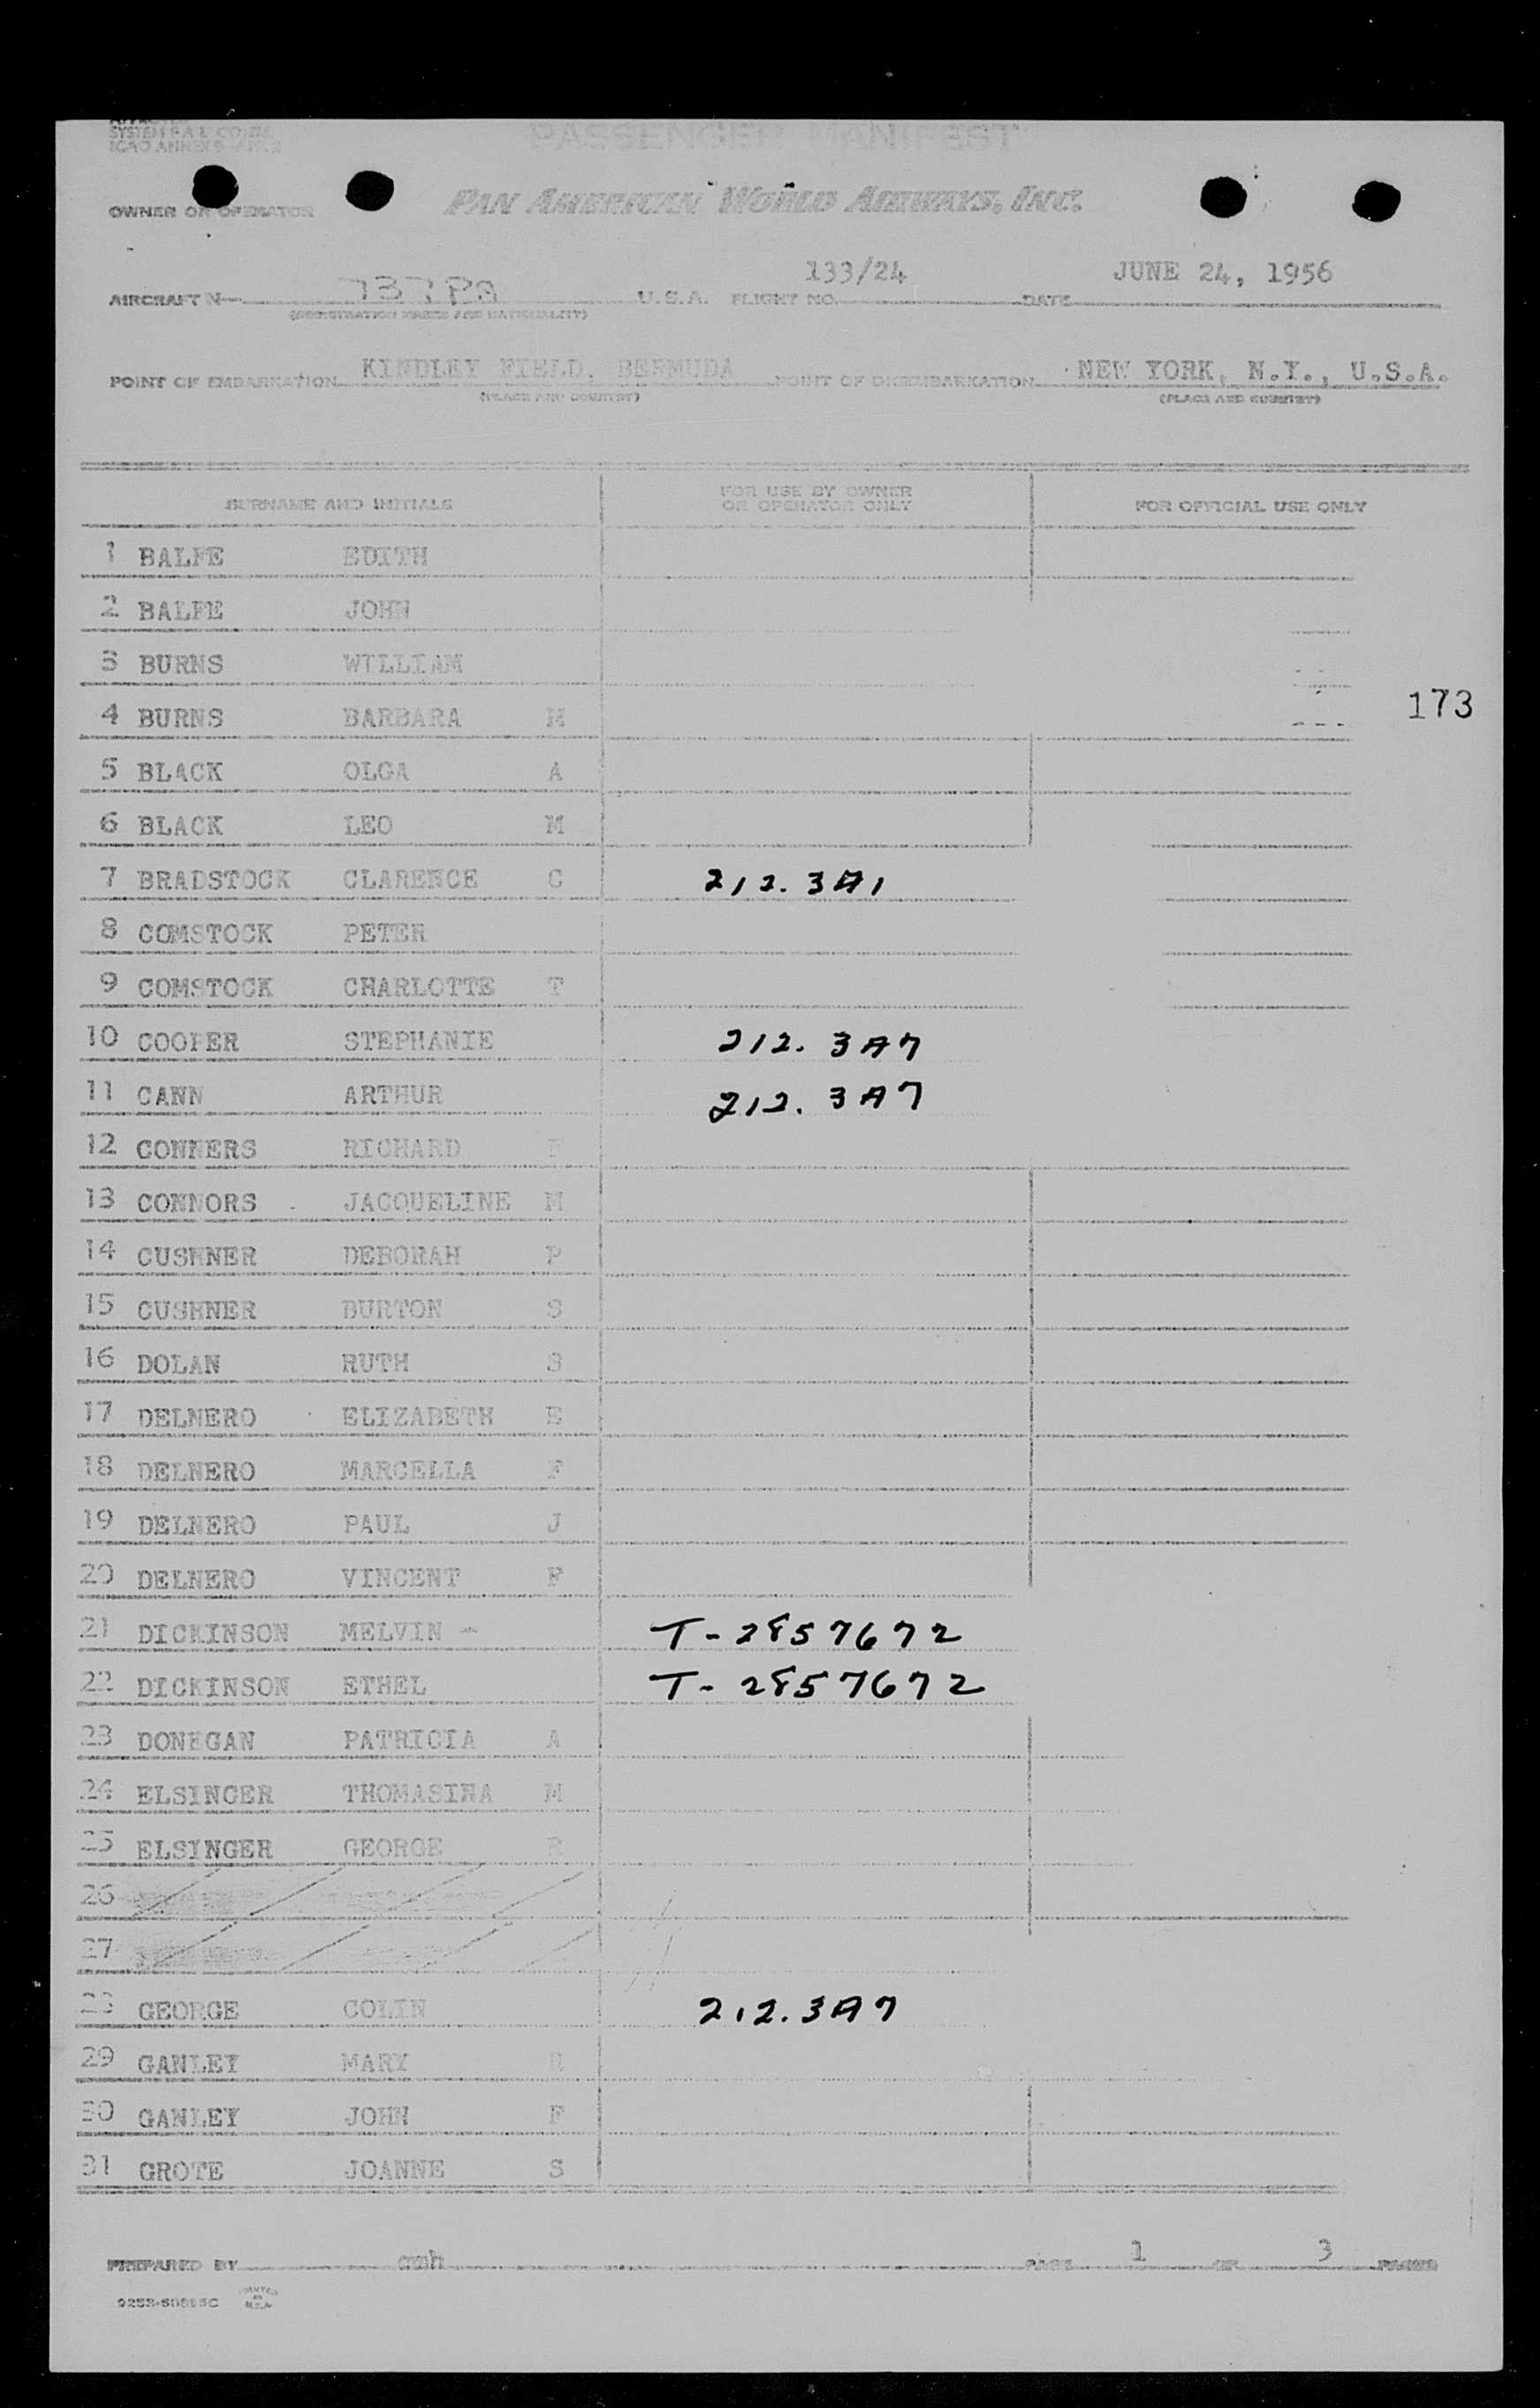 SYSTEM F.A.L. COM
ICAO ANNEX 9
PASSENGER MANIFEST
OWNER OR OPERATOR PAN AMERICAN WORLD AIRWAYS, INC.
AIRCRAFT N U.S.A. FLIGHT NO. 133/24 DATE JUNE 24, 1956
(REGISTRATION MARKS AND NATIONALITY)
POINT OF EMBARKATION KINDLEY FIELD, BERMUDA POINT OF DISEMBARKATION NEW YORK, N.Y., U.S.A.
(PLACE AND COUNTRY) (PLACE AND COUNTRY)
SURNAME AND INITIALS FOR USE BY OWNER OR OPERATOR ONLY FOR OFFICIAL USE ONLY
1 BALFE EDITH
2 BALFE JOHN
3 BURNS WILLIAM
173
4 BURNS BARBARA M
5 BLACK OLGA A
6 BLACK LEO M
7 BRADSTOCK CLARENCE C 212.3A1
8 COMSTOCK PETER
9 COMSTOCK CHARLOTTE T
10 COOPER STEPHANIE 212.3A7
11 CANN ARTHUR 212.3A7
12 CONNERS RICHARD F
13 CONNORS JACQUELINE M
14 CUSHNER DEBORAH P
15 CUSHNER BURTON S
16 DOLAN RUTH S
17 DELNERO ELIZABETH E
18 DELNERO MARCELLA F
19 DELNERO PAUL J
20 DELNERO VINCENT F
21 DICKINSON MELVIN - T-2857672
22 DICKINSON ETHEL T-2857672
23 DONEGAN PATRICIA A
24 ELSINGER THOMASINA M
25 ELSINGER GEORGE R
26
27
28 GEORGE COLIN 212.3A7
29 GANLEY MARY R
30 GANLEY JOHN F
31 GROTE JOANNE S
PREPARED BY cmh PAGE 1 OF 3 PAGES
PRINTED IN U.S.A.